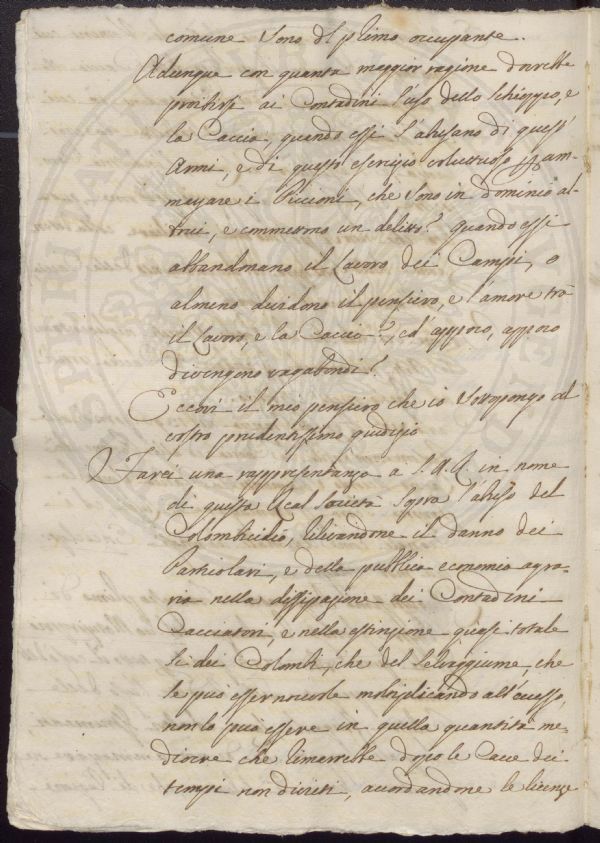 comune sono del primo occupante.
Adunque con quanta maggior ragione dovrebbe
proibirsi ai Contadini l'uso dello Schioppo, e
la Caccia, quando essi s'abusano di quest'
Armi, e di questo esercizio per am-
mazare i Piccioni, che sono in dominio al-
trui, e commettono un delitto? quando essi
abbandonano il Lavoro dei Campi, o
almeno dividono il pensiero, e l'amore trà
il Lavoro, e la Caccia?, ed appoco, appoco
divengono vagabondi?
Eccovi il mio pensiero che io sottopongo al
vostro prudentissimo giudizio
Farei una rappresentanza a S.A.R. in nome
di questa Real Società sopra l'abuso del
Colombicidio, rilevandone il danno dei
Particolari, e della pubblica economia agra-
ria nella dissipazione dei Contadini
Cacciatori, e nella estinzione quasi totale
sì dei Colombi, che del Selvaggiume, che
se può esser nocivole moltiplicando all'eccesso,
non lo può essere in quella quantità me-
diocre che rimarrebbe dopo le Cacce dei
tempi non divieti, accordandone le licenze